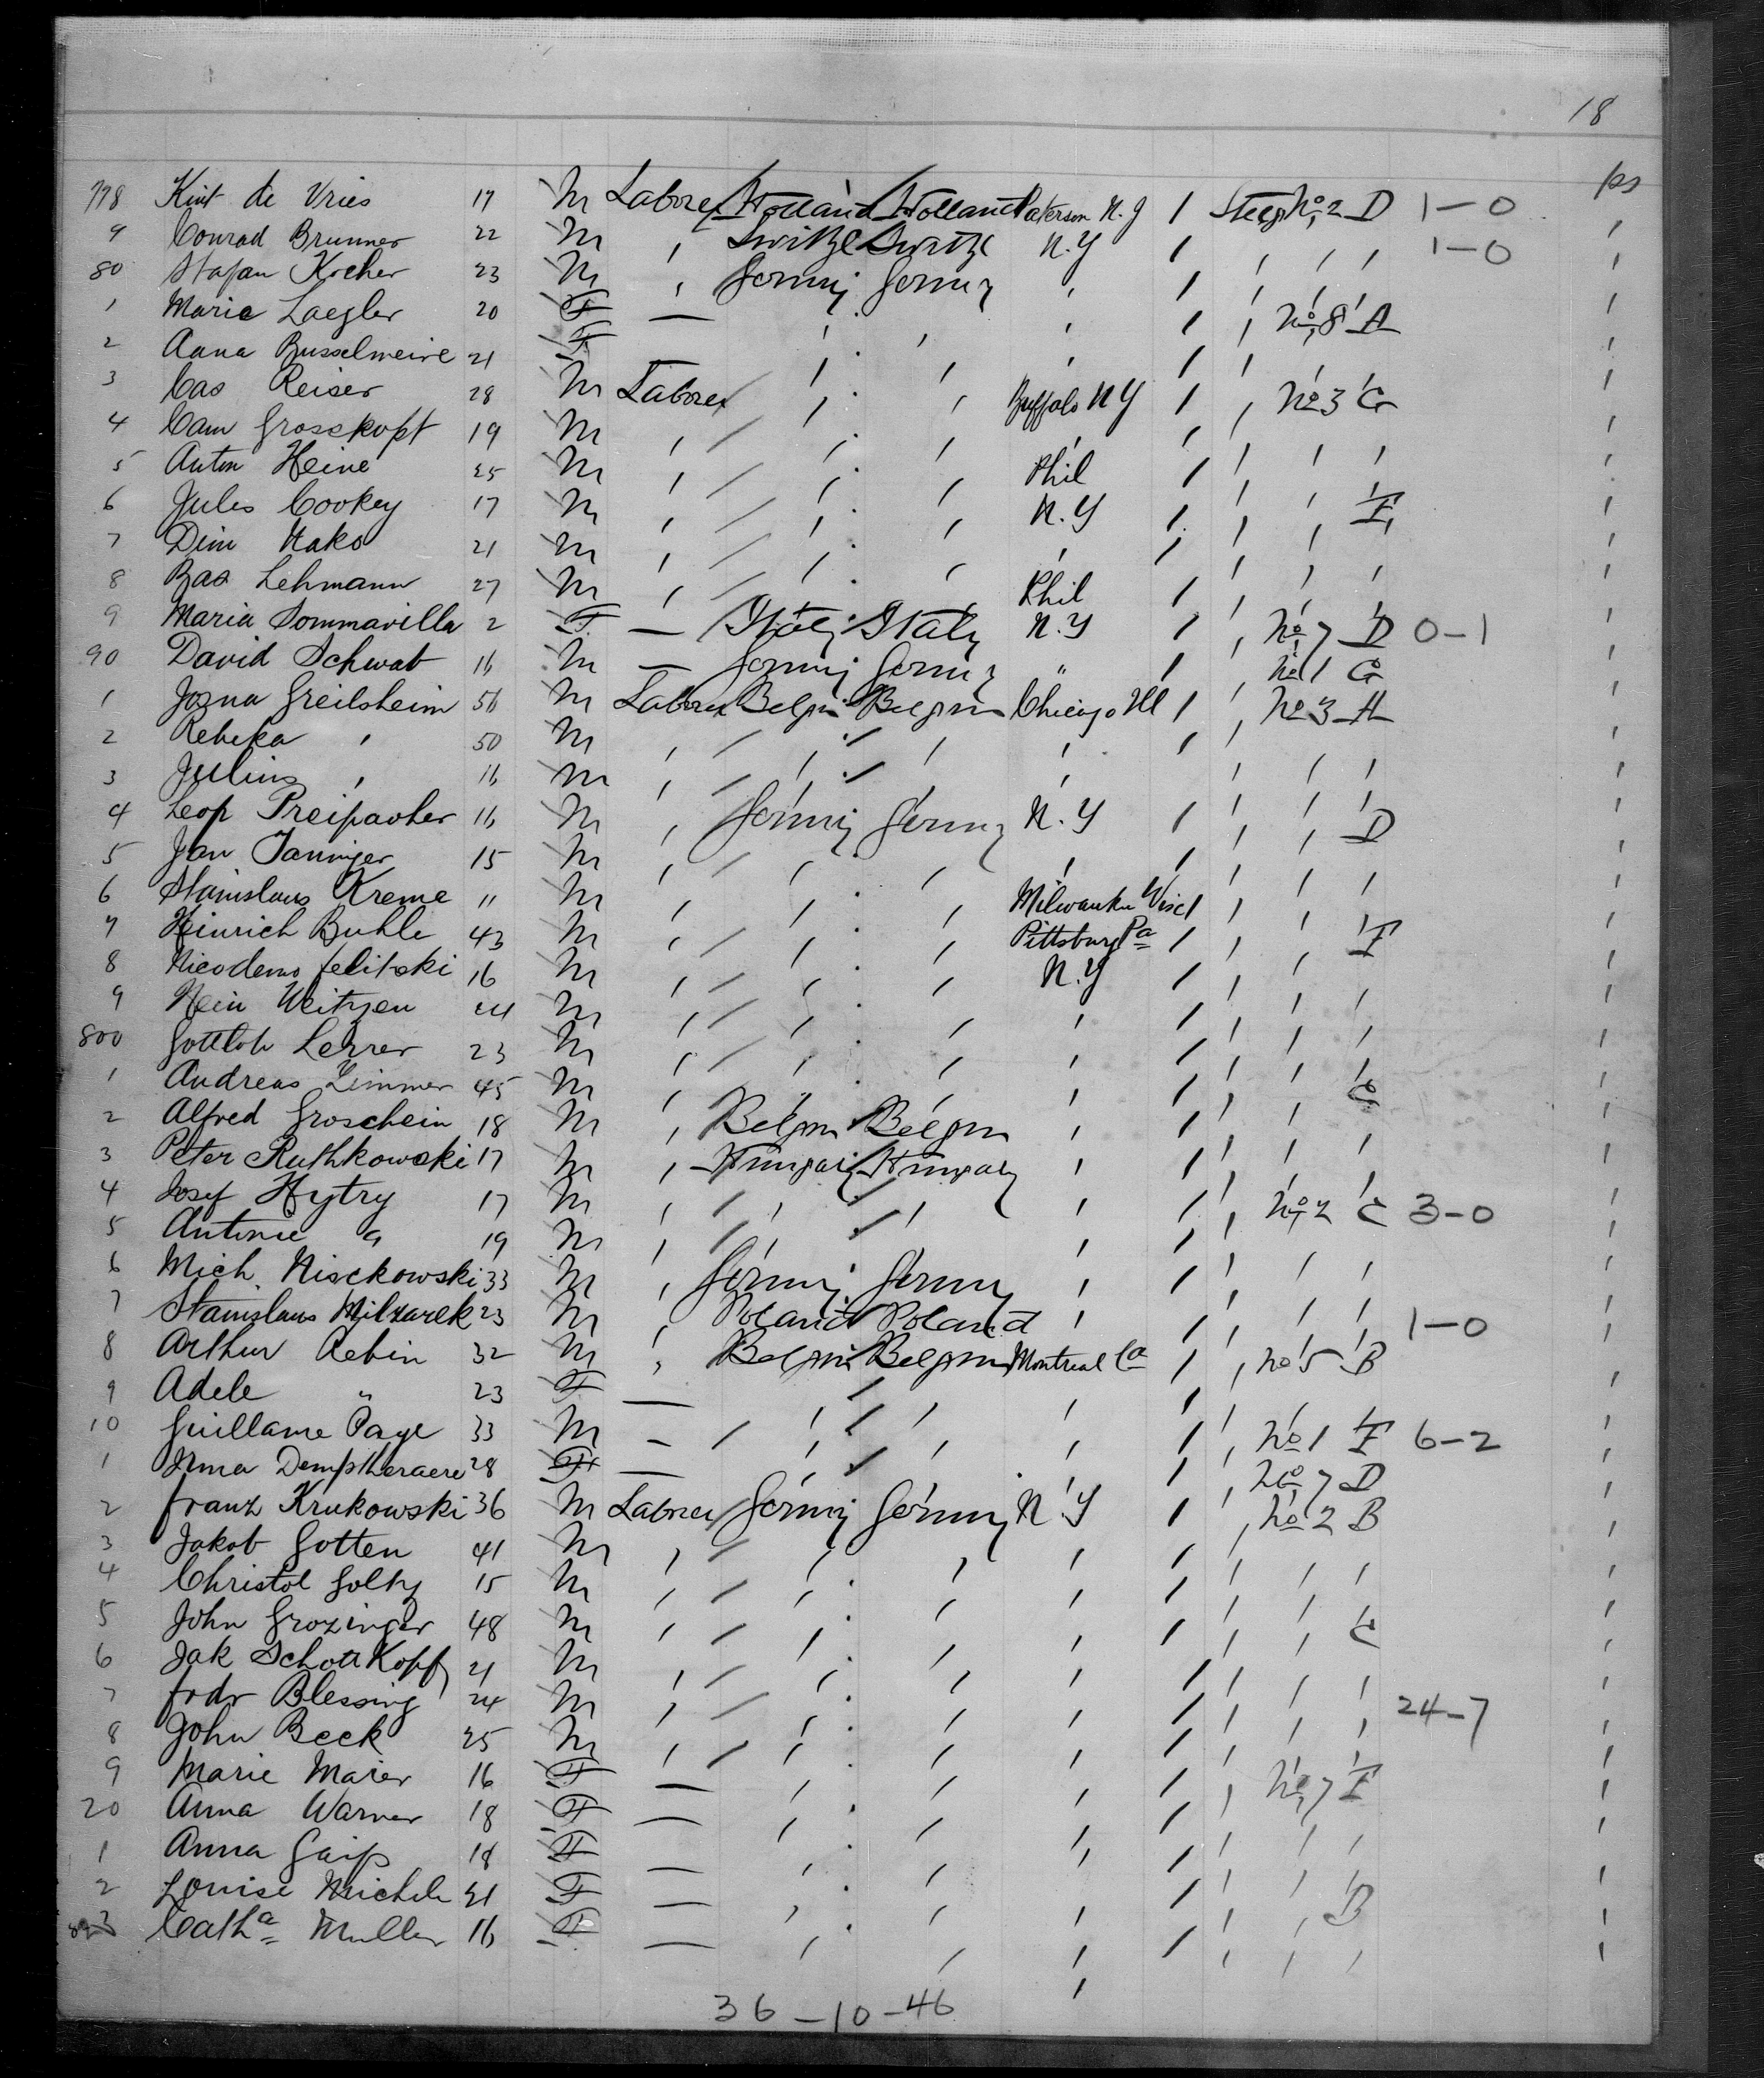 18
778 Kint de Vries 17 M Laborer Holland Holland Paterson N.J / Steeg No 2 D 1-0
9 Conrad Brunner 22 M " Switzl Switzl N.Y / " " " 1-0
80 Stafan Kocher 23 M " Germy Germy " / " " "
1 Marie Laegler 20 F — " " " / " No 8 A
2 Anna Busselmeire 21 F " " " / " " "
3 Cas Reiser 28 M Laborer " " Buffalo NY / " No 3 G
4 Cam Grosskopf 19 M " " " " / " " "
5 Anton Heine 25 M " " " Phil / " " "
6 Jules Cookey 17 M " " " N.Y / " " F
7 Dim Hako 21 M " " " " / " " "
8 Bas Lehmann 27 M " " " Phil / " " "
9 Maria Sommavilla 2 F — Italy Italy N.Y / " No 7 D 0-1
90 David Schwab 16 M — Germy Germy " / No 1 G
1 Josna Greilsheim 56 M Laborer Belgm Belgm Chicago Ill / " No 3 A
2 Rebeka " 50 M " " " " / " " "
3 Julius " 16 M " " " " " " "
4 Leop Preipaoher 16 M " Germy Germy N.Y / " " D
5 Jan Janinger 15 M " " " " / " " "
6 Stanislaus Kreme " M " " " Milwauke Wisc / " " "
7 Heinrich Buhle 43 M " " " Pittsburg Pa / " " F
8 Nicodemo felitski 16 M " " " N.Y / " " "
9 Hein Weitzen 44 M " " " " / " " "
800 Gottlob Lerrer 23 M " " " " / " " "
1 Andreas Zimmer 45 M " " " " / " " C
2 Alfred Groschein 18 M " Belgm Belgm " / " " "
3 Peter Ruthkowski 17 M " Hungary Hungary " / " " "
4 Josef Hytry 17 M " " " " / " No 2 C 3-0
5 Antonie " 19 M " " " " / " " "
6 Mich. Nisckowski 33 M " Germy Germy " / " " "
7 Stanislaus Milzarek 23 M " Poland Poland " / " " " 1-0
8 Arthur Rebin 32 M " Belgm Belgm Montreal Ca / " No 5 B
9 Adele " 23 F — " " " / " " "
10 Guillame Page 33 M — " " " / " No 1 F 6-2
1 Irma Demptheraere 28 F — " " " / No 7 D
2 franz Krukowski 36 M Laborer Germy Germy N.Y / " No 2 B
3 Jakob Gotten 41 M " " " " / " " "
4 Christol Golty 15 M " " " " / " " "
5 John Grozinger 48 M " " " " / " " C
6 Jak Schott Kopf 21 M " " " " / " " "
7 fredr Blessing 24 M " " " " / " " " 24-7
8 John Beck 25 M " " " " / " " "
9 Marie Maier 16 F — " " " / " No 7 F
20 Anna Warner 18 F — " " " / " " "
1 Anna Gaip 18 F — " " " / " " "
2 Louise Michele 21 F — " " " / " " B
823 Catha Muller 16 F — " " " / " " "
36-10-46